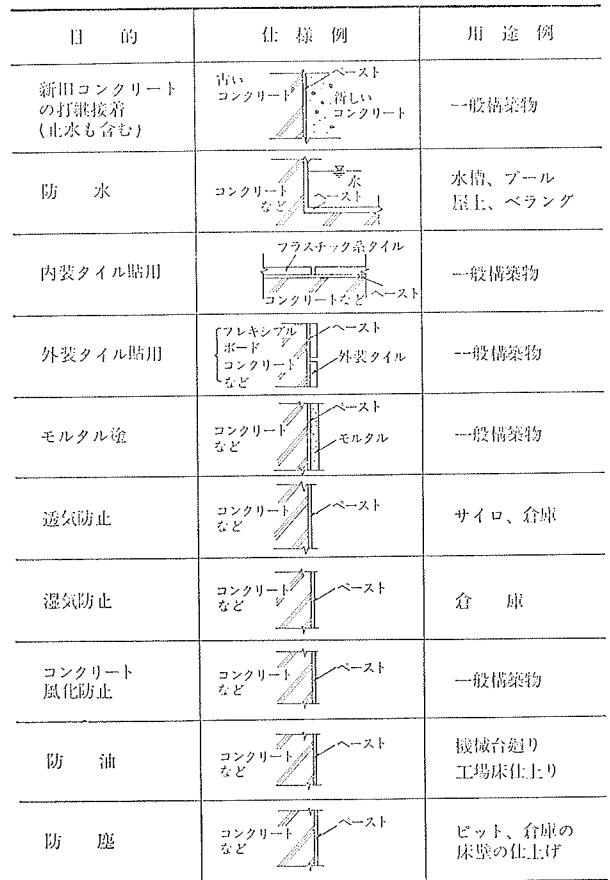 目 的 仕 様 例 用 途 例
新旧コンクリート
の打継接着
(止水も含む)
古い
コンクリート
ペースト
新しい
コンクリート
一般構築物
防 水
コンクリート
など
水
ペースト
水槽、プール
屋上、ベランダ
内装タイル貼用
プラスチック系タイル
コンクリートなど
ペースト
一般構築物
外装タイル貼用
フレキシブル
ボード
コンクリート
など
ペースト
外装タイル
一般構築物
モルタル塗
コンクリート
など
ペースト
モルタル
一般構築物
透気防止
コンクリート
など
ペースト
サイロ、倉庫
湿気防止
コンクリート
など
ペースト
倉 庫
コンクリート
風化防止
コンクリート
など
ペースト
一般構築物
防 油
コンクリート
など
ペースト
機械台廻り
工場床仕上り
防 塵
コンクリート
など
ペースト
ピット、倉庫の
床壁の仕上げ